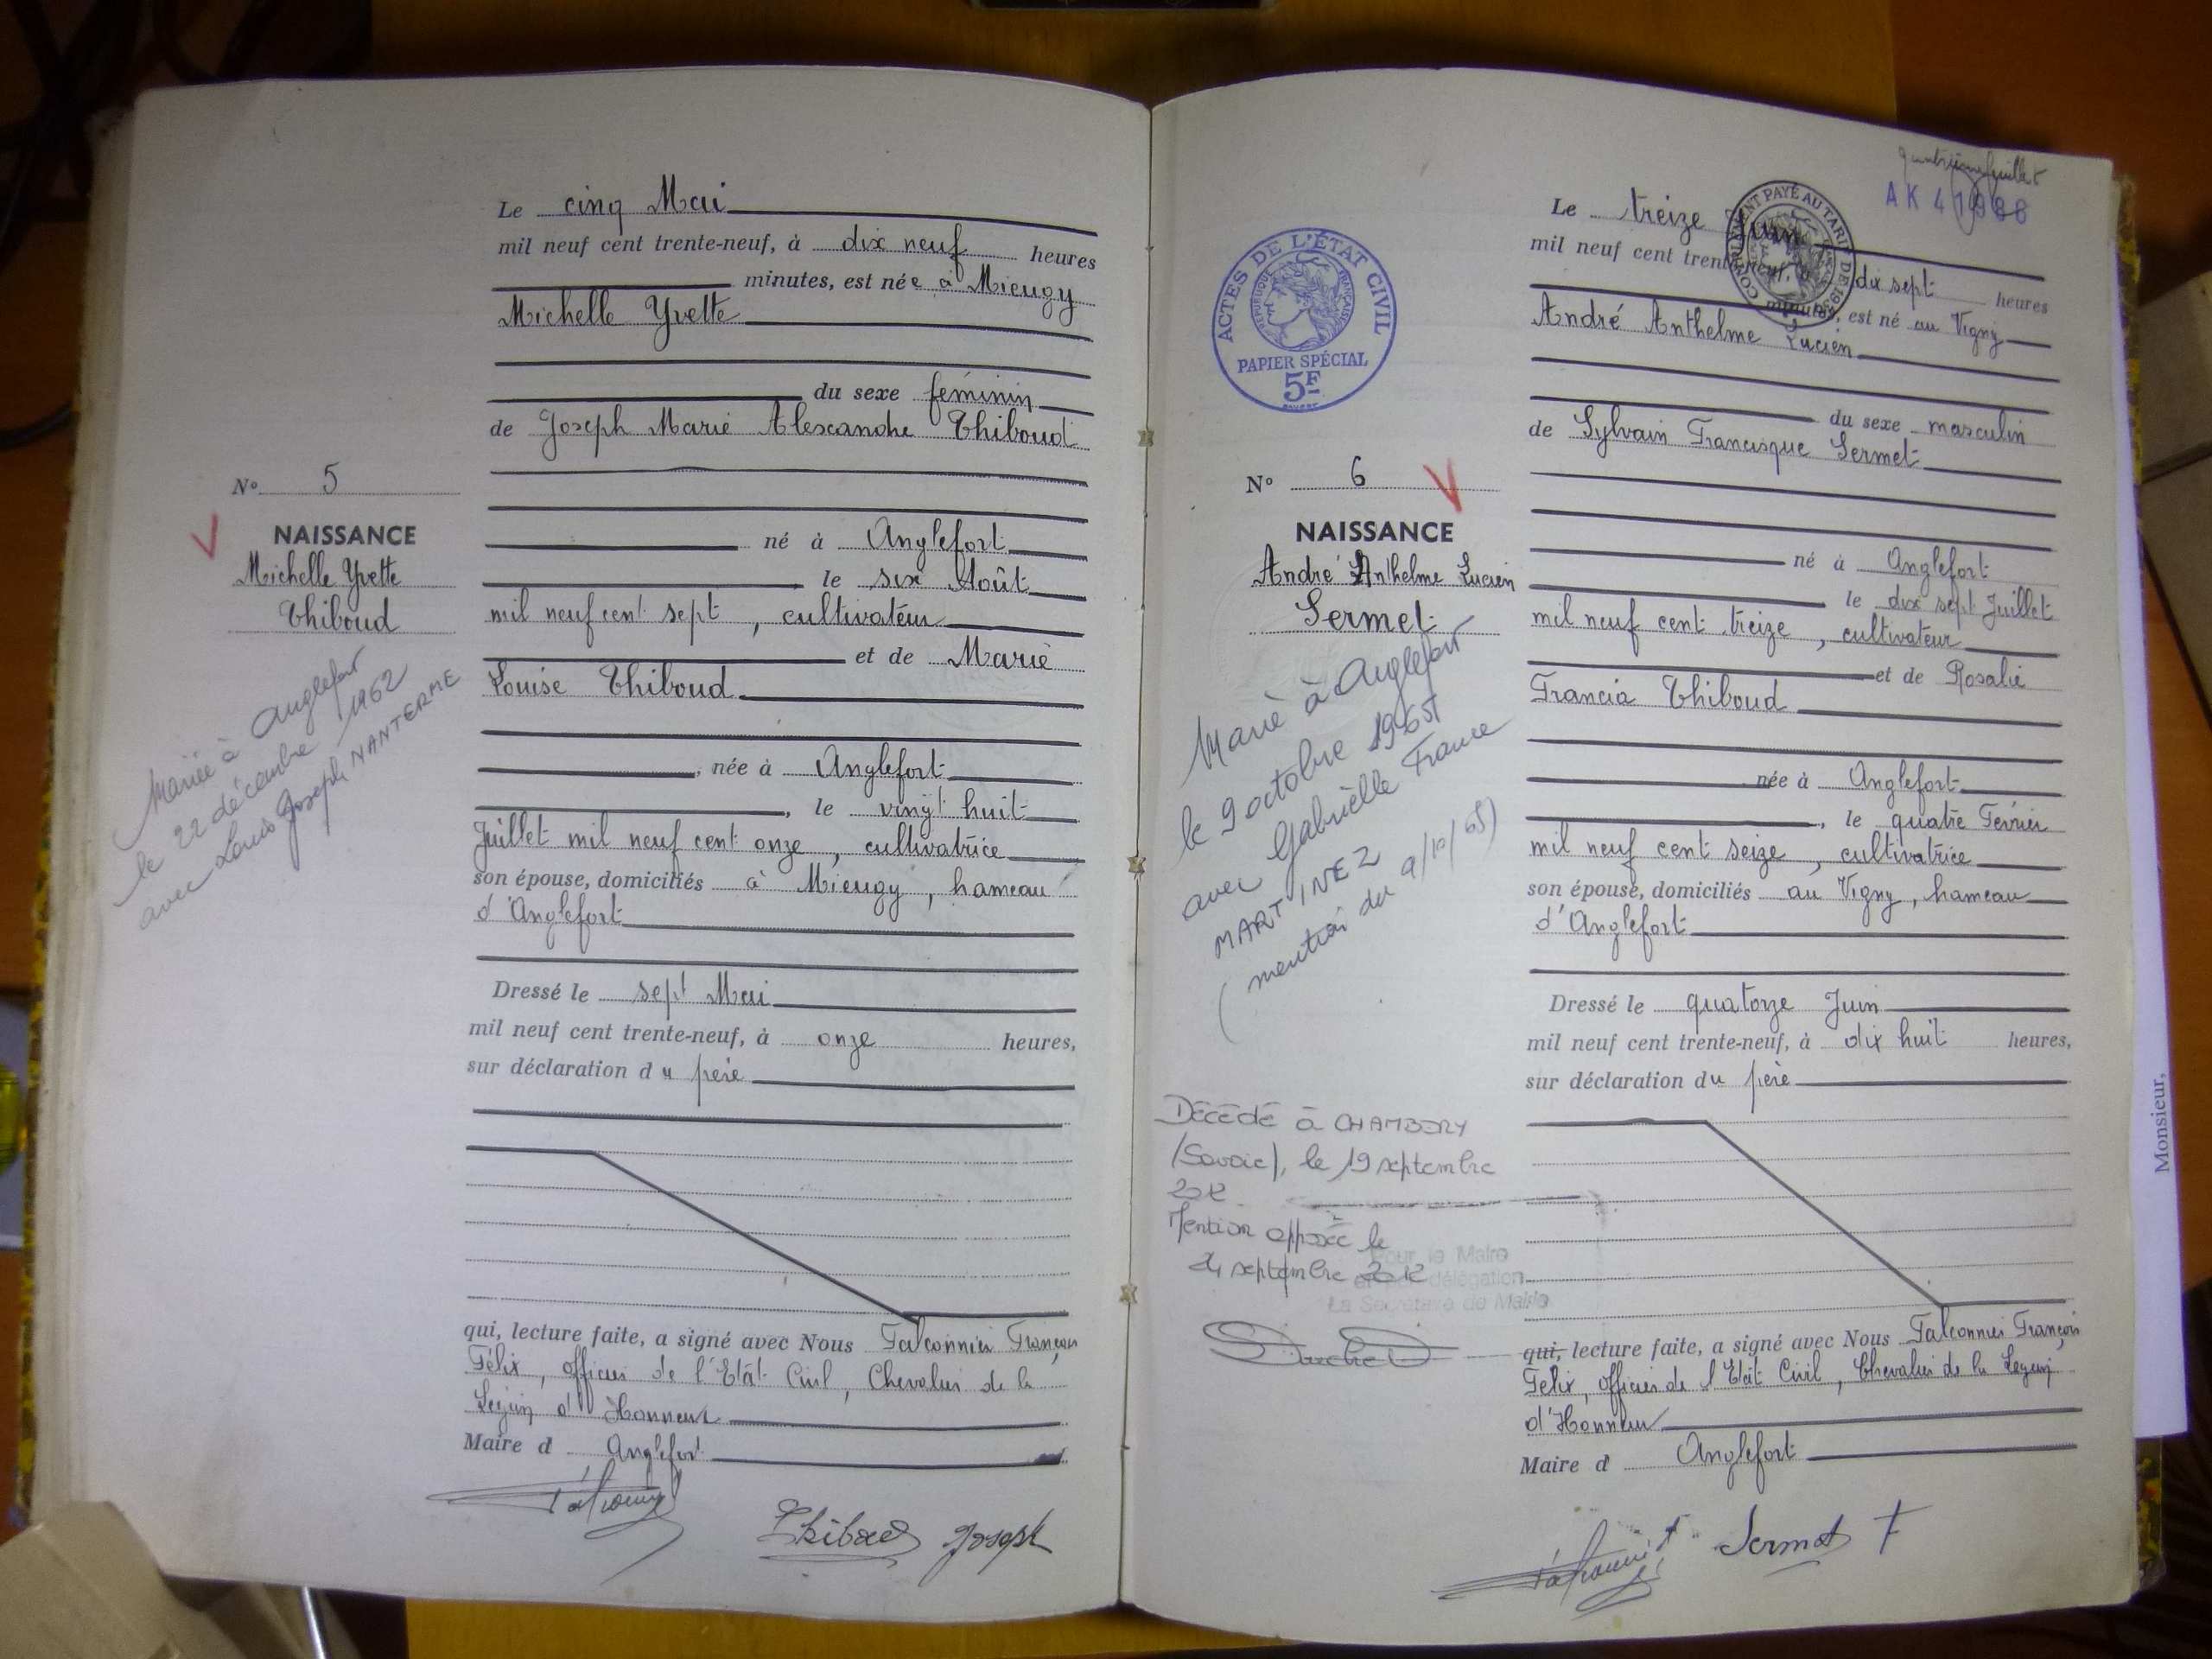 Le cinq Mai
mil neuf cent trente-neuf, à dix neuf heures
minutes, est née à Mieugy
Michelle Yvette
du sexe féminin
de Joseph Marie Alexandre Thiboud
N° 5
NAISSANCE
Michelle Yvette
Thiboud
Mariée à Anglefort
le 22 décembre 1962
avec Louis Joseph NANTERME
né à Anglefort
le six Août
mil neuf cent sept, cultivateur
et de Marie
Louise Thiboud
, née à Anglefort
, le vingt huit
Juillet mil neuf cent onze, cultivatrice
son épouse, domiciliés à Mieugy, hameau
d'Anglefort
Dressé le sept Mai
mil neuf cent trente-neuf, à onze heures,
sur déclaration du père
qui, lecture faite, a signé avec Nous Falconnier François
Félix, officier de l'Etat Civil, Chevalier de la
Légion d'Honneur
Maire d Anglefort
Thiboud Joseph
quatrième feuillet
AK 41988
Le treize Juin
mil neuf cent trente-neuf, à dix sept heures
minutes, est né au Vigny
André Anthelme Lucien
du sexe masculin
de Sylvain Francisque Sermet
ACTES DE L'ÉTAT CIVIL
RÉPUBLIQUE FRANÇAISE
PAPIER SPÉCIAL
5F
N° 6
NAISSANCE
André Anthelme Lucien
Sermet
Marié à Anglefort
le 9 octobre 1965
avec Gabrielle France
MARTINEZ
(mention du 9/10/65)
Décédé à CHAMBERY
(Savoie), le 19 septembre
2012
Mention apposée le
24 septembre 2012
Pour le Maire
et par délégation
La Secrétaire de Mairie
né à Anglefort
le dix sept Juillet
mil neuf cent treize, cultivateur
et de Rosalie
Francia Thiboud
née à Anglefort
, le quatre Février
mil neuf cent seize, cultivatrice
son épouse, domiciliés au Vigny, hameau
d'Anglefort
Dressé le quatorze Juin
mil neuf cent trente-neuf, à dix huit heures,
sur déclaration du père
qui, lecture faite, a signé avec Nous Falconnier François
Félix, officier de l'Etat Civil, Chevalier de la Légion
d'Honneur
Maire d Anglefort
Sermet F
Monsieur,